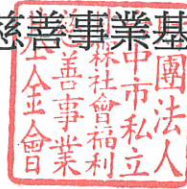 慈善事業基
團法人
中市私立
林社會福利
善事業
金會